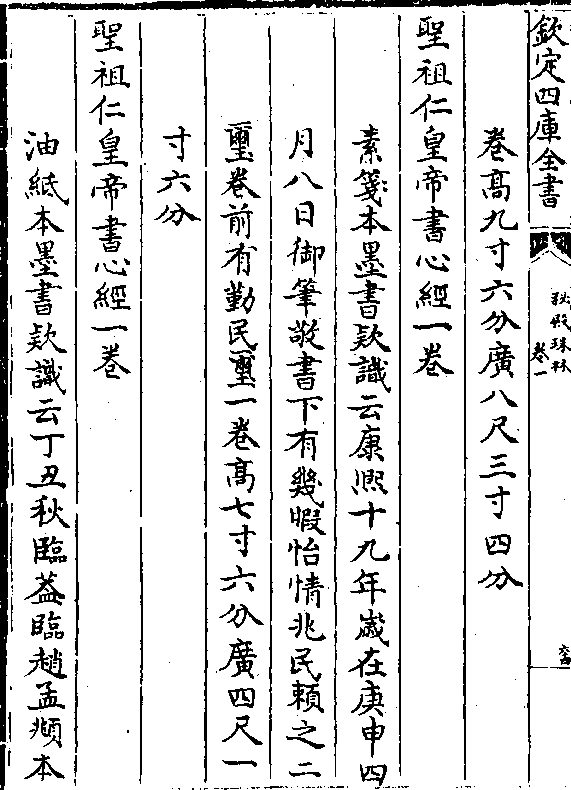 欽定四庫全書
秘殿珠林
卷一
卷髙九寸六分廣八尺三寸四分
聖祖仁皇帝書心經一卷
素箋本墨書欵識云康熙十九年嵗在庚申四
月八日御筆敬書下有幾暇怡情兆民頼之二
璽卷前有勤民璽一卷髙七寸六分廣四尺一
寸六分
聖祖仁皇帝書心經一卷
油紙本墨書欵識云丁丑秋臨葢臨趙孟頫本